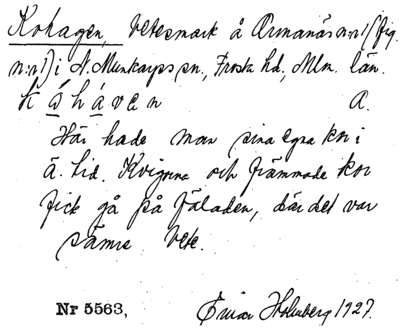 Kohagen, betesmark å Ormanäs n:r 1 (fig.
n:r 1) i N. Munkarps sn., Frosta hd., Mlm. län.
k o h á v e n a.
Här hade man sina egna kor i
ä. tid. Kvigorna och främmade kor
fick gå på fäladen, där det var
sämre bete.
Nr 5563, Einar Holmberg 1927.